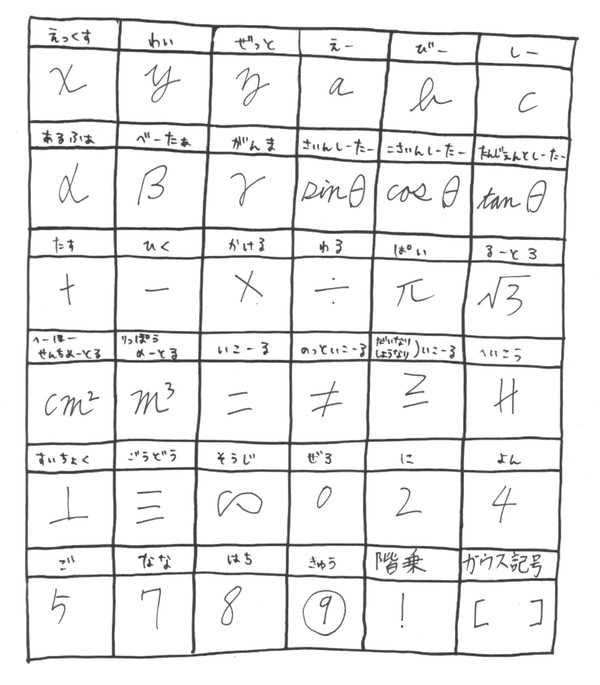 えっくす わい ぜっと えー びー しー
x y z a b c
あるふぁ べーたぁ がんま さいんしーたー こさいんしーたー たんじぇんとしーたー
α β γ sinθ cosθ tanθ
たす ひく かける わる ぱい るーと3
+ − × ÷ π √3
へーほー せんちめーとる りっぽう めーとる いこーる のっといこーる だいなり しょうなり)いこーる へいこう
cm² m³ = ≠ ≧ //
すいちょく ごうどう そうじ ぜろ に よん
⊥ ≡ ∽ 0 2 4
ご なな はち きゅう 階乗 ガウス記号
5 7 8 ⑨ ! [ ]